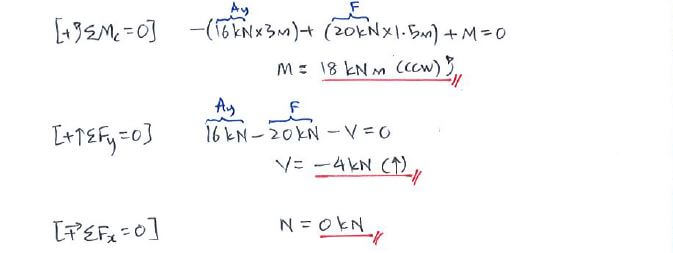 Ay F
[+↺ΣMc=0] -(16kN×3m)+ (20kN×1.5m)+M=0
M= 18 kNm (ccw)↺
Ay F
[+↑ΣFy=0] 16kN-20kN-V=0
V= -4kN (↑)
[→+ΣFx=0] N=0kN